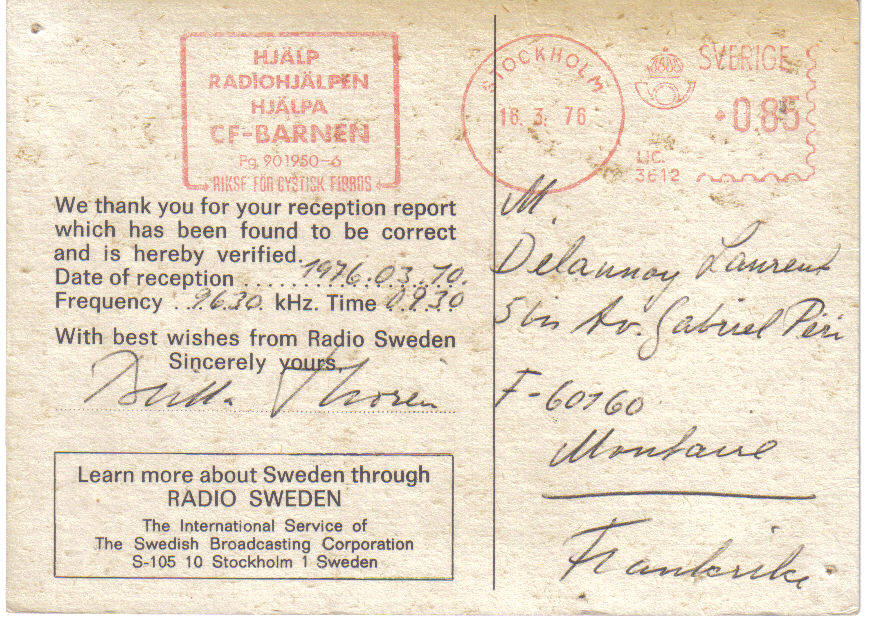 HJÄLP
RADIOHJÄLPEN
HJÄLPA
CF-BARNEN
Pg. 901950-6
RIKSF FÖR CYSTISK FIBROS
STOCKHOLM
16. 3. 76
SVERIGE
0.85
LIC.
3612
We thank you for your reception report
which has been found to be correct
and is hereby verified.
Date of reception 1976.03.10.
Frequency 9630 kHz. Time 0930
With best wishes from Radio Sweden
Sincerely yours,
Thorén
Learn more about Sweden through
RADIO SWEDEN
The International Service of
The Swedish Broadcasting Corporation
S-105 10 Stockholm 1 Sweden
M.
Delannoy Laurent
5 bis Av. Gabriel Péri
F-60160
Montaire
Frankrike